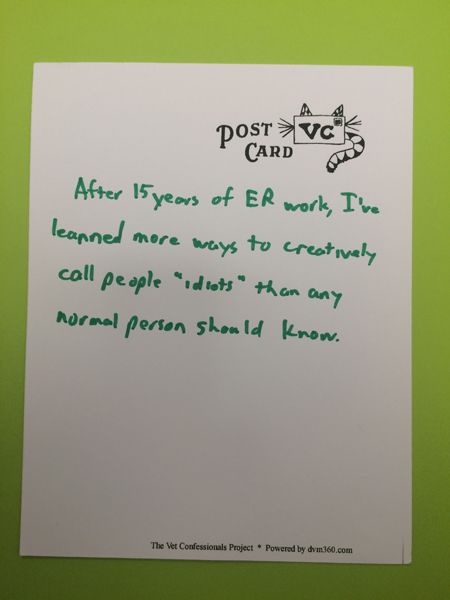 POST
CARD
VC
After 15 years of ER work, I've
learned more ways to creatively
call people "idiots" than any
normal person should know.
The Vet Confessionals Project * Powered by dvm360.com